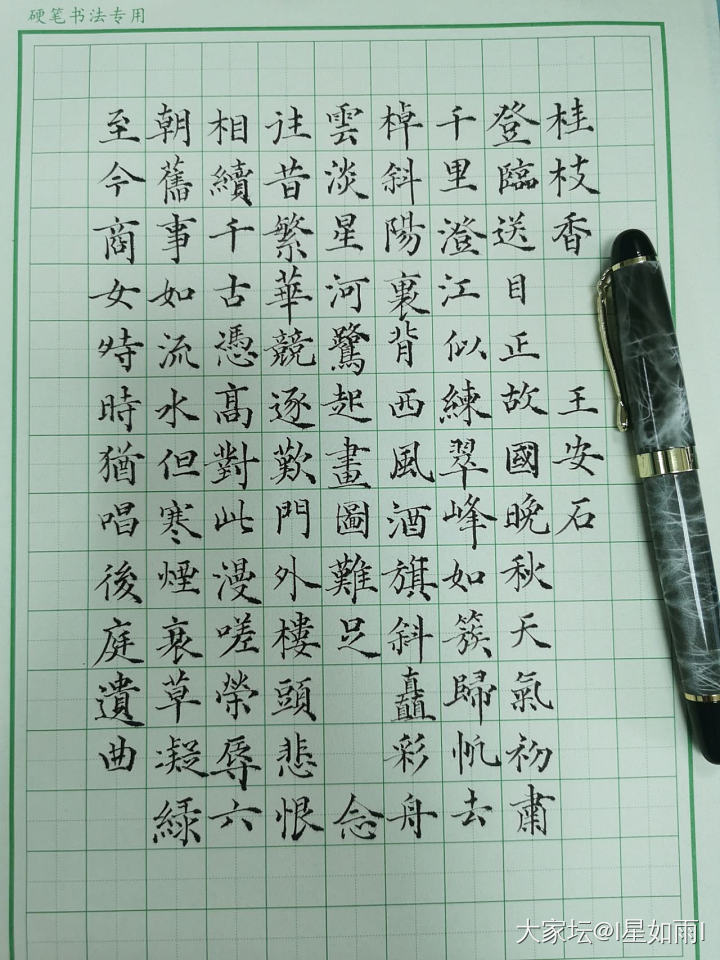 硬笔书法专用
桂枝香 王安石
登臨送目正故國晚秋天氣初肅
千里澄江似練翠峰如簇歸帆去
棹斜陽裏背西風酒旗斜矗彩舟
雲淡星河鷺起畫圖難足 念
往昔繁華競逐歎門外樓頭悲恨
相續千古憑高對此漫嗟榮辱六
朝舊事如流水但寒煙衰草凝綠
至今商女特時猶唱後庭遺曲
大家坛@I星如雨I